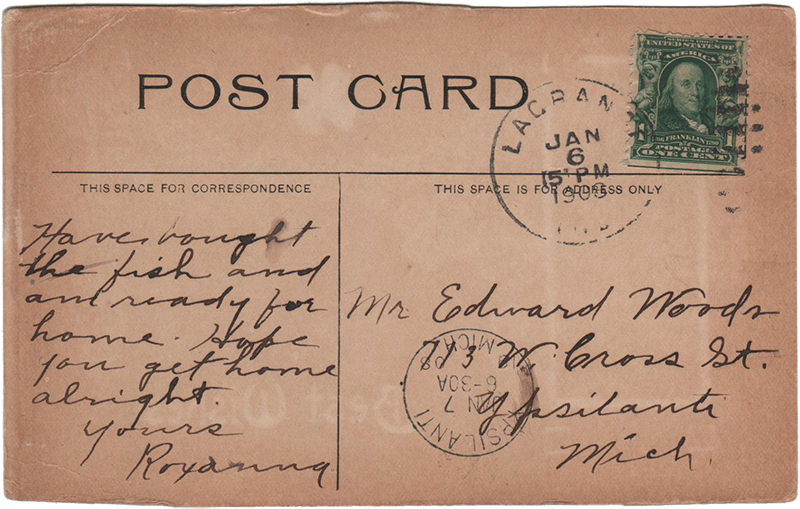 SERIES 1902
UNITED STATES OF
AMERICA
FRANKLIN
POSTAGE
ONE CENT
POST CARD
LAGRAN
JAN
6
5 PM
IND
THIS SPACE FOR CORRESPONDENCE
THIS SPACE IS FOR ADDRESS ONLY
Have bought
the fish and
am ready for
home. Hope
you get home
alright.
Yours
Roxanna
Mr. Edward Woods
713 W. Cross St.
Ypsilanti
Mich.
YPSILANTI
JAN 7
6-30A
MICH
Best